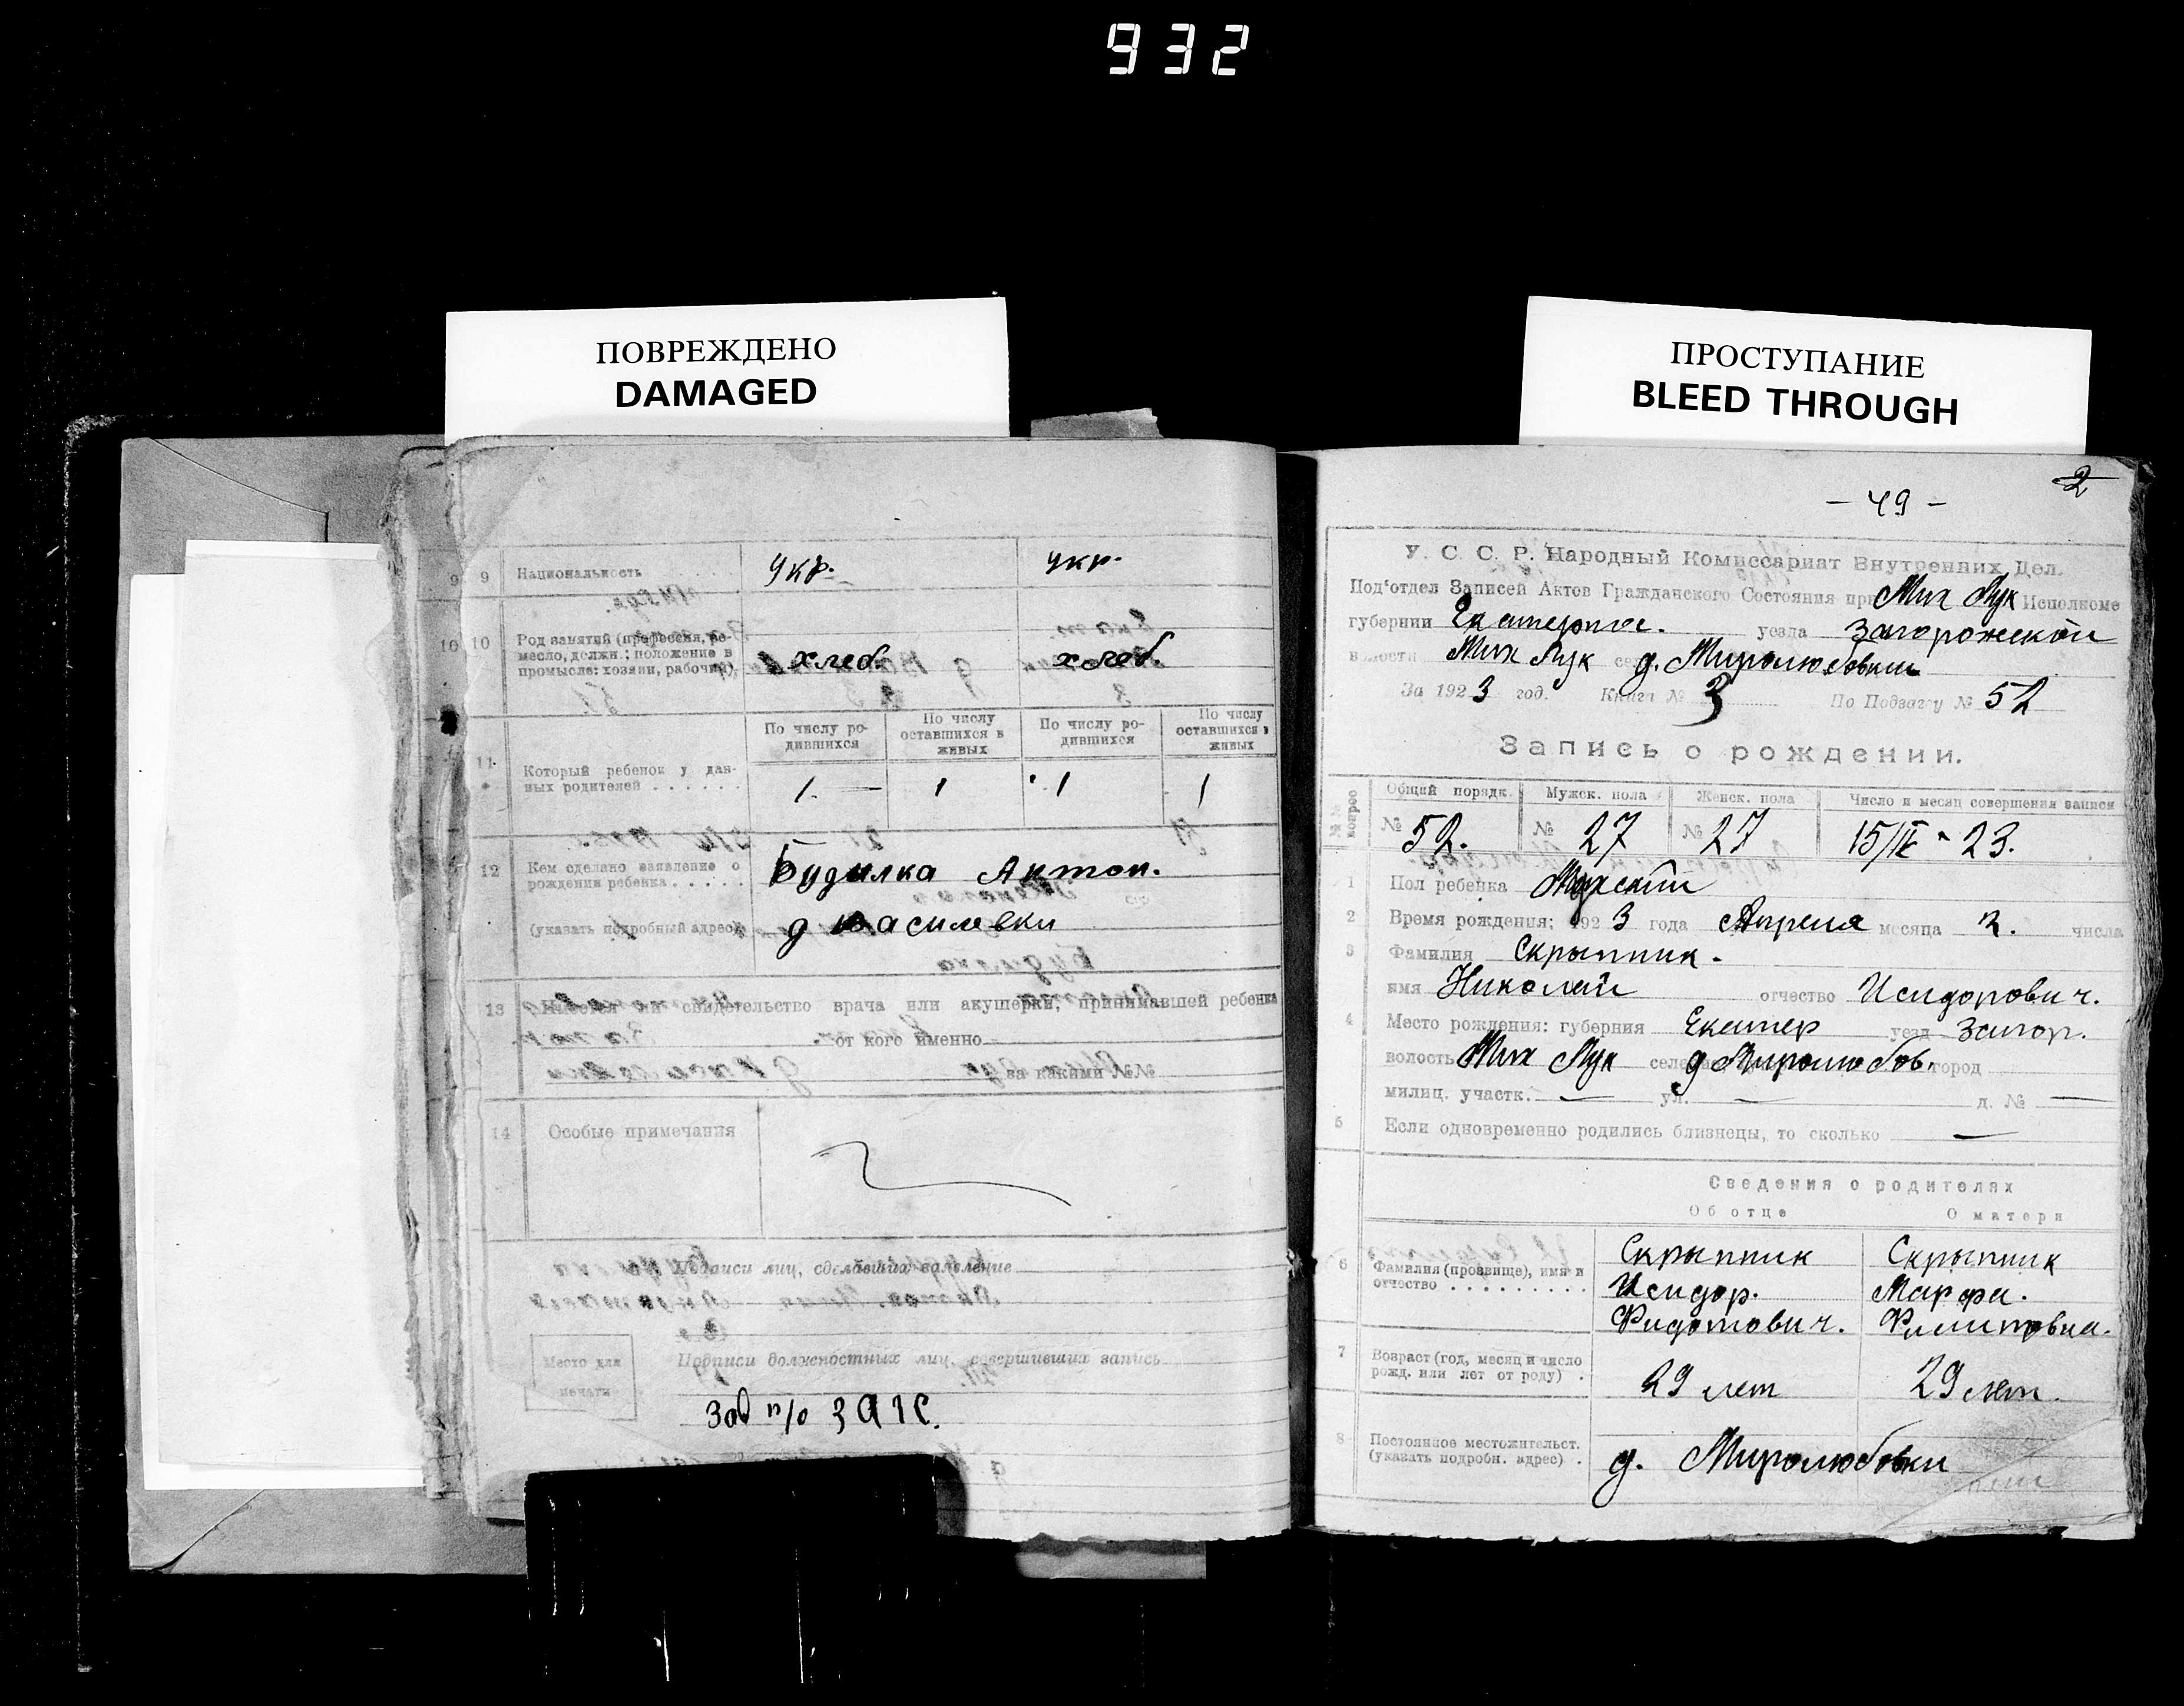 932
ПОВРЕЖДЕНО
DAMAGED
ПРОСТУПАНИЕ
BLEED THROUGH
9 9 Национальность укр. укр.
10 10 Род занятий (профессия, ре-
месло, должн.; положение в
промысле: хозяин, рабочий), хлеб. хлеб.
11 Который ребенок у дан-
ных родителей . . . . . .
По числу ро-
дившихся
По числу
оставшихся в
живых
По числу ро-
дившихся
По числу
оставшихся в
живых
1. 1 1 1
12 Кем сделано заявление о
рождении ребенка . . . . . Будилка Антон.
(указать подробный адрес) д Василевки
13 Имеется ли свидетельство врача или акушерки, принимавшей ребенка
от кого именно
за какими №№
14 Особые примечания
Подписи лиц, сделавших заявление
Место для
печати
Подписи должностных лиц, совершивших запись
Зав п/о ЗАГС.
2
— 49 —
У. С. С. Р. Народный Комиссариат Внутренних Дел.
Под'отдел Записей Актов Гражданского Состояния при Мих Лук Исполкоме
губернии Екатеринос. уезда Запорожской
волости Мих Лук д. Миролюбовки
За 1923 год. Книга № 3 По Подзагу № 52
Запись о рождении.
№№ вопрос
Общий порядк. Мужск. пола Женск. пола Число и месяц совершения записи
№ 52. № 27 № 27 15/IV - 23.
1 Пол ребенка Мужской
2 Время рождения; 1923 года Апреля месяца 2. числа
3 Фамилия Скрыпник.
имя Николай отчество Исидорович.
4 Место рождения: губерния Екатер уезд Запор.
волость Мих Лук д Миролюбов. город
милиц. участк. — ул. — д. № —
5 Если одновременно родились близнецы, то сколько —
Сведения о родителях
Об отце О матери
6 Фамилия (прозвище), имя и
отчество . . . . . . . . .
Скрыпник Скрыпник
Исидор. Марфа.
Фидотович. Филиповна.
7 Возраст (год, месяц и число
рожд. или лет от роду) . 29 лет 29 лет.
8 Постоянное местожительст.
(указать подробн. адрес) . д. Миролюбовки